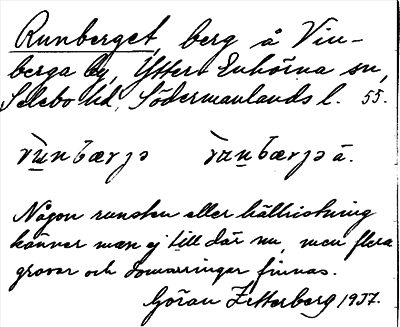 Runberget, berg å Vin-
berga by, Ytter-Enhörna sn,
Selebo hd, Södermanlands l. 55.
rùnbærjə rùnbærjə̄.
Någon runsten eller hällristning
känner man ej till där nu, men flera
gravar och domarringar finnas.
Göran Zetterberg 1937.